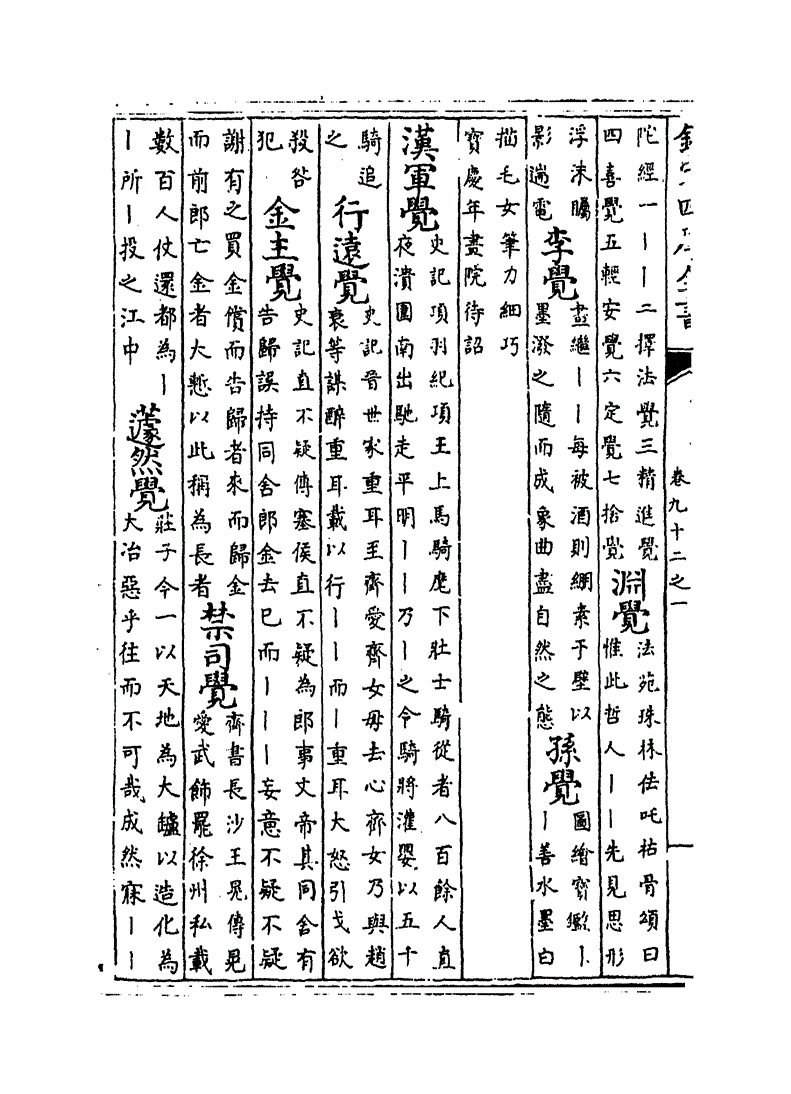 欽定四庫全書
卷九十二之一
陀經一丨丨二擇法覺三精進覺
四喜覺五輕安覺六定覺七捨覺
淵覺
法苑珠林佉吒祜骨頌曰
惟此哲人丨丨先見思形
浮沫矚
影遄電
李覺
畫繼丨丨每被酒則綳素于壁以
墨潑之隨而成象曲盡自然之態
孫覺
圖繪寶鑑丨
丨善水墨白
描毛女筆力細巧
寶慶年畫院待詔
漢軍覺
史記項羽紀項王上馬騎麾下壯士騎從者八百餘人直
夜潰圍南出馳走平明丨丨乃丨之令騎將灌嬰以五千
騎追
之
行遠覺
史記晉世家重耳至齊愛齊女毋去心齊女乃與趙
衰等謀醉重耳載以行丨丨而丨重耳大怒引戈欲
殺咎
犯
金主覺
史記直不疑傳塞侯直不疑為郎事文帝其同舍有
告歸誤持同舍郎金去已而丨丨丨妄意不疑不疑
謝有之買金償而告歸者來而歸金
而前郎亡金者大慙以此稱為長者
禁司覺
齊書長沙王晃傳晃
愛武飾罷徐州私載
數百人仗還都為丨
丨所丨投之江中
蘧然覺
莊子今一以天地為大罏以造化為
大冶惡乎往而不可哉成然寐丨丨